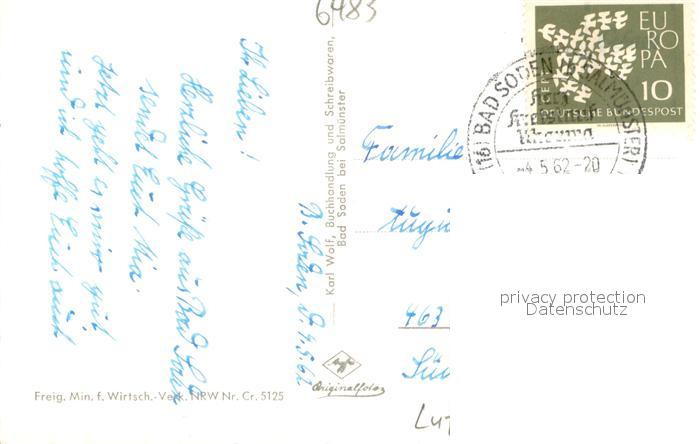 6483
Ihr Lieben!
Herzliche Grüße aus Bad Soden
sendet Euch Mia.
Jetzt geht es mir gut
und ich hoffe Euch auch
B. Soden, d. 4.5.62
Karl Wolf, Buchhandlung und Schreibwaren,
Bad Soden bei Salmünster
Freig. Min. f. Wirtsch.-Verk. NRW Nr. Cr. 5125
Agfa
Originalfoto
EUROPA
10
DEUTSCHE BUNDESPOST
(16) BAD SODEN (B SALMÜNSTER)
Herz
Kreislauf
-4.5.62-20
Familie
463
privacy protection
Datenschutz